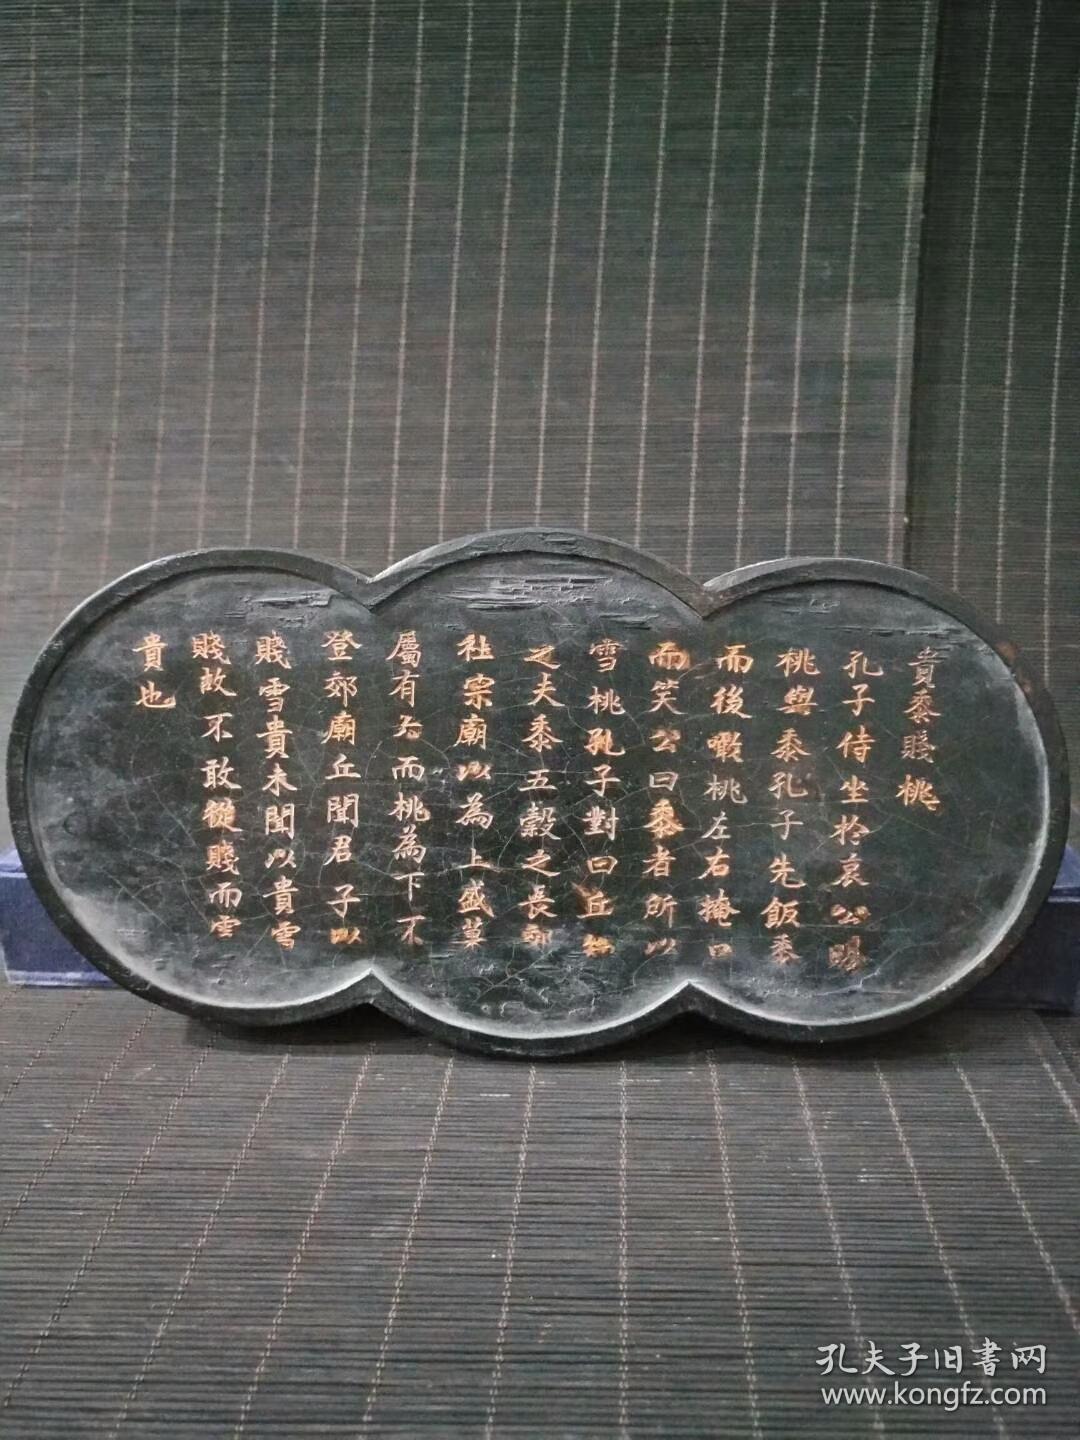 貴黍賤桃
孔子侍坐於哀公賜
桃與黍孔子先飯黍
而後啗桃左右掩口
而笑公曰黍者所以
雪桃孔子對曰丘知
之夫黍五穀之長郊
社宗廟以為上盛菓
屬有六而桃為下不
登郊廟丘聞君子以
賤雪貴未聞以貴雪
賤故不敢從賤而雪
貴也
孔夫子旧書网
www.kongfz.com